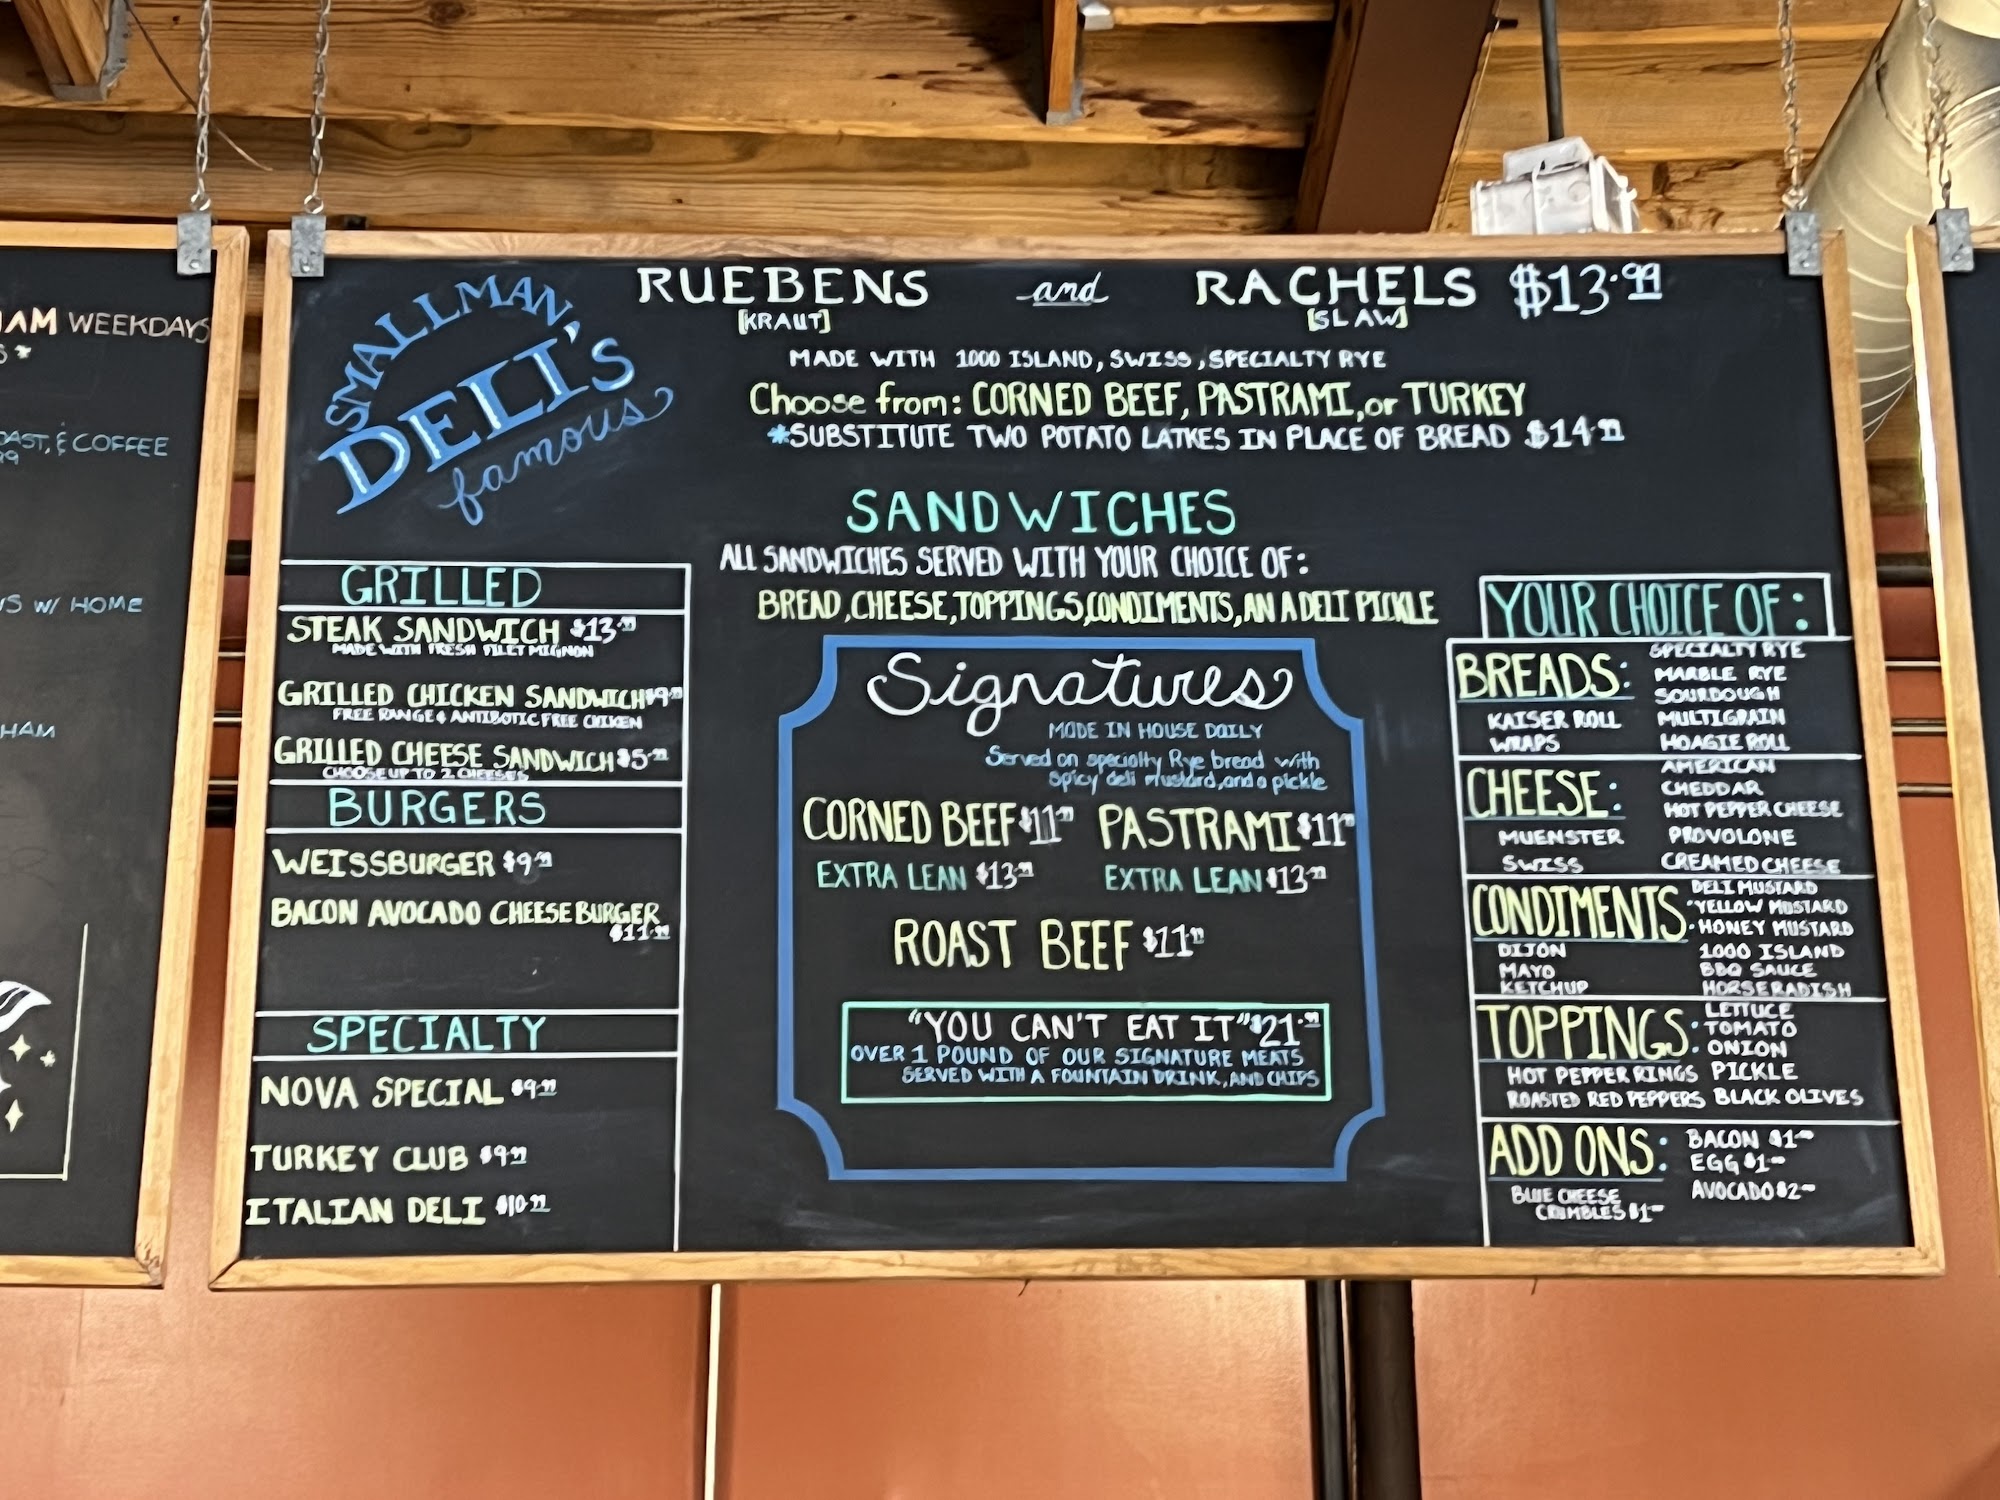 AM WEEKDAYS
OAST, & COFFEE
W/ HOME
HAM
SMALLMAN
DELI'S
famous
RUEBENS and RACHELS $13.99
[KRAUT] [SLAW]
MADE WITH 1000 ISLAND, SWISS, SPECIALTY RYE
Choose from: CORNED BEEF, PASTRAMI, or TURKEY
*SUBSTITUTE TWO POTATO LATKES IN PLACE OF BREAD $14.99
SANDWICHES
ALL SANDWICHES SERVED WITH YOUR CHOICE OF:
BREAD, CHEESE, TOPPINGS, CONDIMENTS, AN A DELI PICKLE
GRILLED
STEAK SANDWICH $13.99
MADE WITH FRESH FILET MIGNON
GRILLED CHICKEN SANDWICH $9.99
FREE RANGE & ANTIBOTIC FREE CHIKEN
GRILLED CHEESE SANDWICH $5.99
CHOOSE UP TO 2 CHEESES
BURGERS
WEISSBURGER $9.99
BACON AVOCADO CHEESEBURGER
$11.99
SPECIALTY
NOVA SPECIAL $9.99
TURKEY CLUB $9.99
ITALIAN DELI $10.99
Signatures
MADE IN HOUSE DAILY
Served on specialty Rye bread with
spicy deli mustard, and a pickle
CORNED BEEF $11.99 PASTRAMI $11.99
EXTRA LEAN $13.99 EXTRA LEAN $13.99
ROAST BEEF $11.99
"YOU CAN'T EAT IT" $21.99
OVER 1 POUND OF OUR SIGNATURE MEATS
SERVED WITH A FOUNTAIN DRINK, AND CHIPS
YOUR CHOICE OF:
BREADS: SPECIALTY RYE
MARBLE RYE
SOURDOUGH
KAISER ROLL MULTIGRAIN
WRAPS HOAGIE ROLL
CHEESE: AMERICAN
CHEDDAR
HOT PEPPER CHEESE
MUENSTER PROVOLONE
SWISS CREAMED CHEESE
CONDIMENTS: DELI MUSTARD
YELLOW MUSTARD
HONEY MUSTARD
DIJON 1000 ISLAND
MAYO BBQ SAUCE
KETCHUP HORSERADISH
TOPPINGS: LETTUCE
TOMATO
ONION
HOT PEPPER RINGS PICKLE
ROASTED RED PEPPERS BLACK OLIVES
ADD ONS: BACON $1.00
EGG $1.00
BLUE CHEESE AVOCADO $2.00
CRUMBLES $1.00